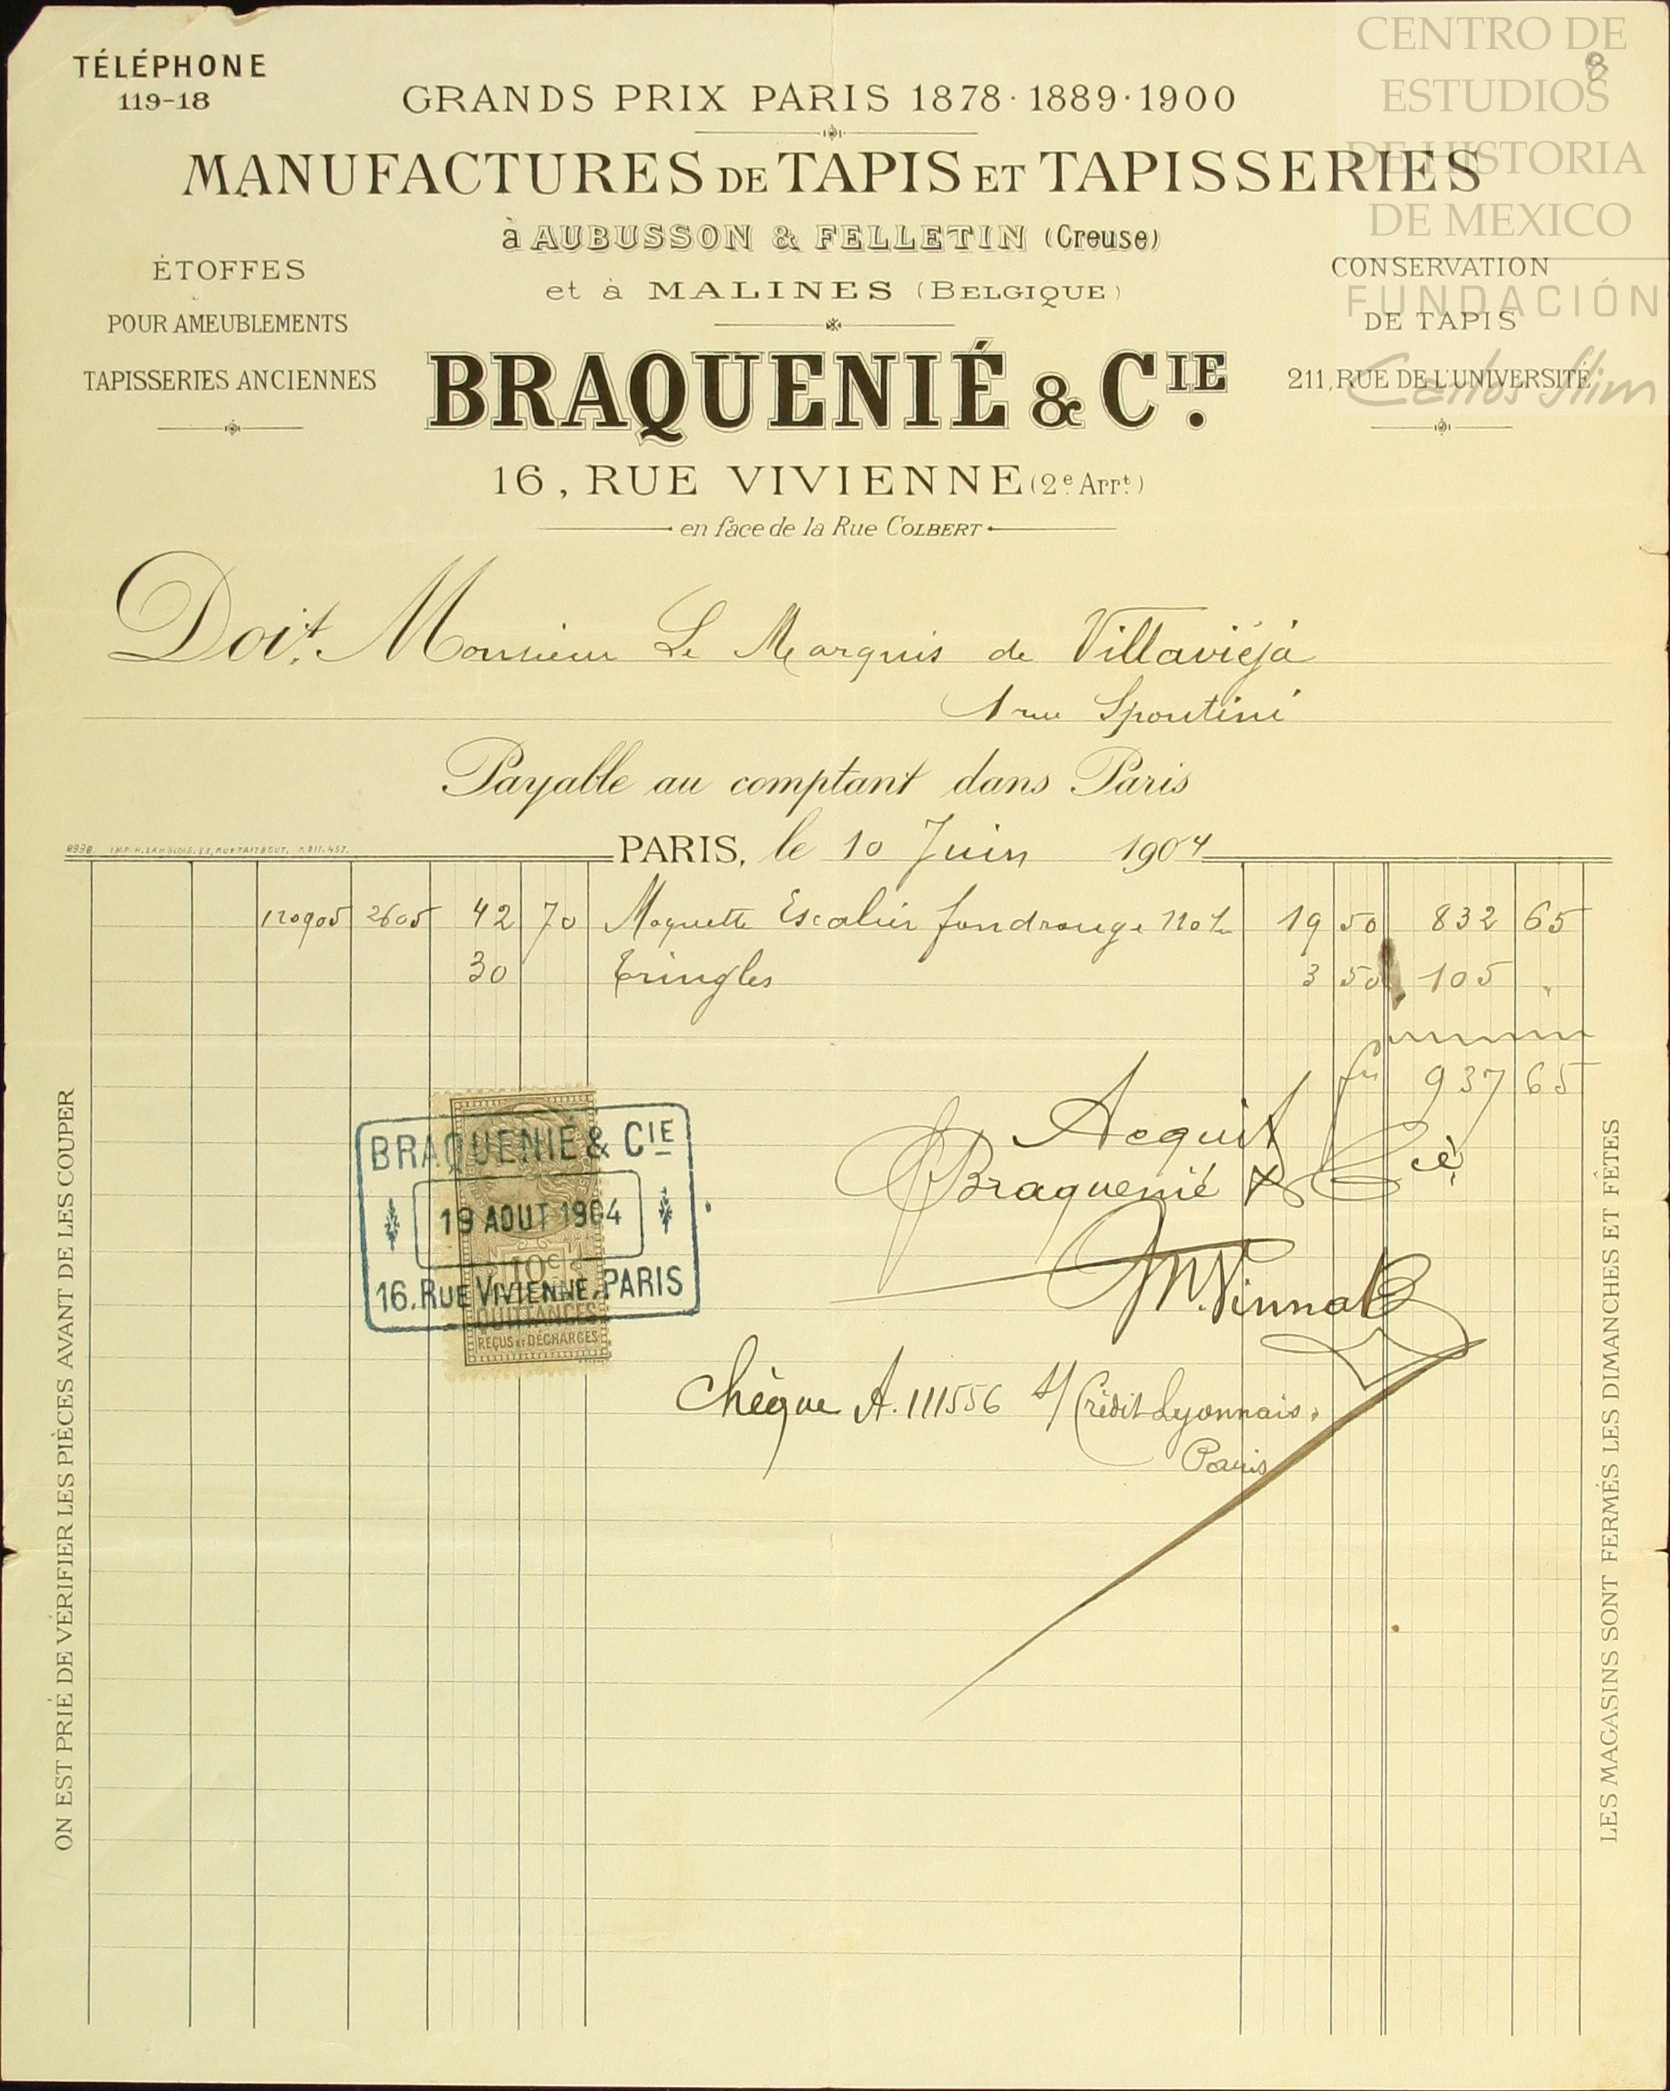 CENTRO DE
ESTUDIOS
DE HISTORIA
DE MEXICO
FUNDACIÓN
Carlos Slim
8
TÉLÉPHONE
119-18
GRANDS PRIX PARIS 1878·1889·1900
MANUFACTURES DE TAPIS ET TAPISSERIES
à AUBUSSON & FELLETIN (Creuse)
et à MALINES (BELGIQUE)
ÉTOFFES
POUR AMEUBLEMENTS
TAPISSERIES ANCIENNES
CONSERVATION
DE TAPIS
211, RUE DE L'UNIVERSITÉ
BRAQUENIÉ & CIE.
16, RUE VIVIENNE (2e Arrt)
en face de la Rue COLBERT
Doit Monsieur Le Marquis de Villavieja
1 rue Spontini
Payable au comptant dans Paris
8938 IMP. H. LANGLOIS. 83, RUE TAITBOUT. T. 311.457.
PARIS, le 10 Juin 1904
120905 2605 42 70 Moquette Escalier fond rouge 19 50 832 65
30 Tringles 3 50 105 "
937 65
Acquit
Braquenié & Cie
BRAQUENIÉ & CIE
19 AOUT 1904
16. RUE VIVIENNE. PARIS
10c
QUITTANCES
REÇUS ET DÉCHARGES
Chèque A. 111556 s/ Crédit Lyonnais.
Paris
ON EST PRIÉ DE VÉRIFIER LES PIÈCES AVANT DE LES COUPER
LES MAGASINS SONT FERMÉS LES DIMANCHES ET FÊTES